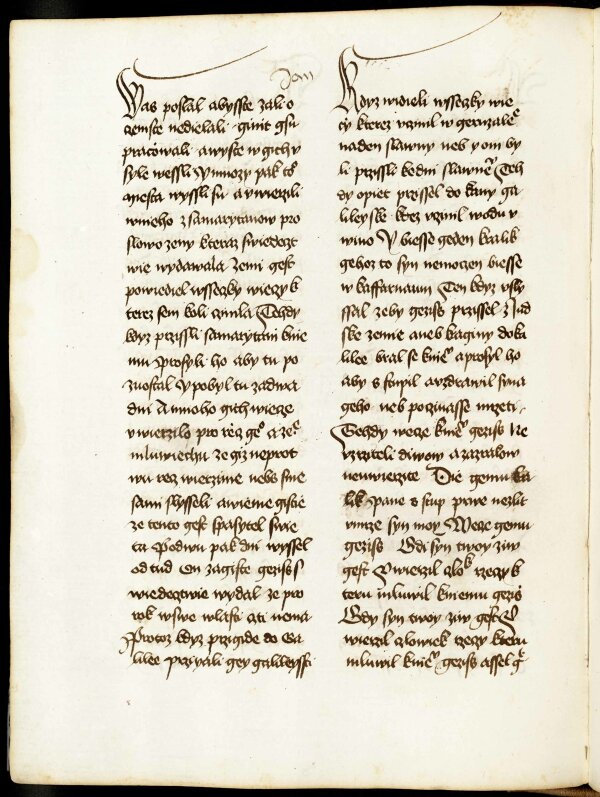 Jan
Was poslal abysste zali o
zemste nedielali · ginit gsu
pracowali · a wyste w gich v
syle wessli V mnozy pak to͛
miesta wyssli su a vwierzili
wnieho z samarytanow pro
slowo zeny kteraz swiedecz
wie wydawala Ze mi gest
powiediel wsseczky wieczy k
terez sem koli czinila Tehdy
kdyz przissli samarytani knie
mu Prosyli ho aby tu po
zuostal Y pobyl tu za dwa
dni A mnoho gich wiecze
vwierzilo pro rzecz ge͛ a ze͛
mluwiechu ze giz ne prot
wu rzecz wierzime nebo sme
sami slysseli a wieme gistie
ze tento gest spasytel swie
ta Po dwu pak dni wyssel
od tud On zagiste gezisse
wiedectwie wydal ze pro
rok w swe wlasti cti nema
Protoz kdyz przigide do Ga
lilee Przyyali gey galileyssti
Kdyz widieli wsseczky wie
cy kterez vczinil w geruzale͛
na den slawny neb y oni by
li przissli ke dni slawne͛ Teh
dy opiet przissel do kany ga
lileyske kdez vczinil wodu v
wino Y biesse geden kralik
gehoz to syn nemoczen biesse
w kaffarnaum Ten kdyz vsly
ssal zeby gezis przissel z Jud
ske zemie aneb kaginy do ka
lilee bral se knie͛ a prosyl ho
aby sstupil a vzdrawil syna
geho neb pocinasse mrzeti ·
Tehdy wece knie͛ gezis Ne
vzrzyteli diwow a zazrakow
newierzite Die gemu kra
lik Pane sstup prwe nezlit
vmrze syn moy Wece gemu
gezis Gdi syn twoy ziw
gest Y wierzil czlok rzeczy k
teru mluwil kniemu gezis
Gdy syn twoy ziw gest Y
wierzil czlowiek rzeczy kteru
mluwil knie͛ gezis a ssel g͛